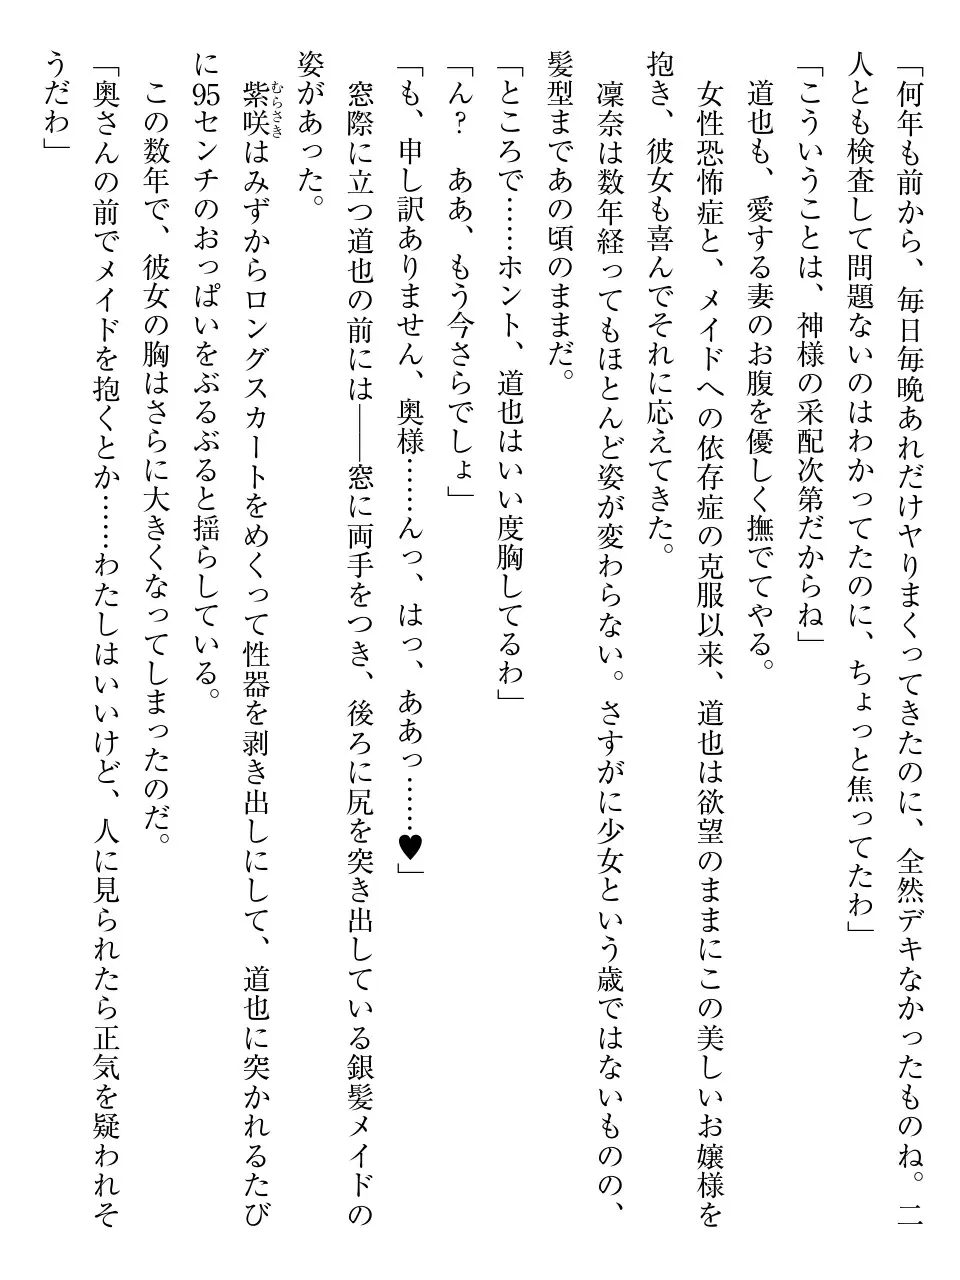 「何年も前から、毎日毎晩あれだけヤりまくってきたのに、全然デキなかったものね。二
人とも検査して問題ないのはわかってたのに、ちょっと焦ってたわ」
「こういうことは、神様の采配次第だからね」
道也も、愛する妻のお腹を優しく撫でてやる。
女性恐怖症と、メイドへの依存症の克服以来、道也は欲望のままにこの美しいお嬢様を
抱き、彼女も喜んでそれに応えてきた。
凜奈は数年経ってもほとんど姿が変わらない。さすがに少女という歳ではないものの、
髪型まであの頃のままだ。
「ところで……ホント、道也はいい度胸してるわ」
「ん？　ああ、もう今さらでしょ」
「も、申し訳ありません、奥様……んっ、はっ、ああっ……♥」
窓際に立つ道也の前には――窓に両手をつき、後ろに尻を突き出している銀髪メイドの
姿があった。
紫咲はみずからロングスカートをめくって性器を剥き出しにして、道也に突かれるたび
に95センチのおっぱいをぶるぶると揺らしている。
この数年で、彼女の胸はさらに大きくなってしまったのだ。
「奥さんの前でメイドを抱くとか……わたしはいいけど、人に見られたら正気を疑われそ
うだわ」